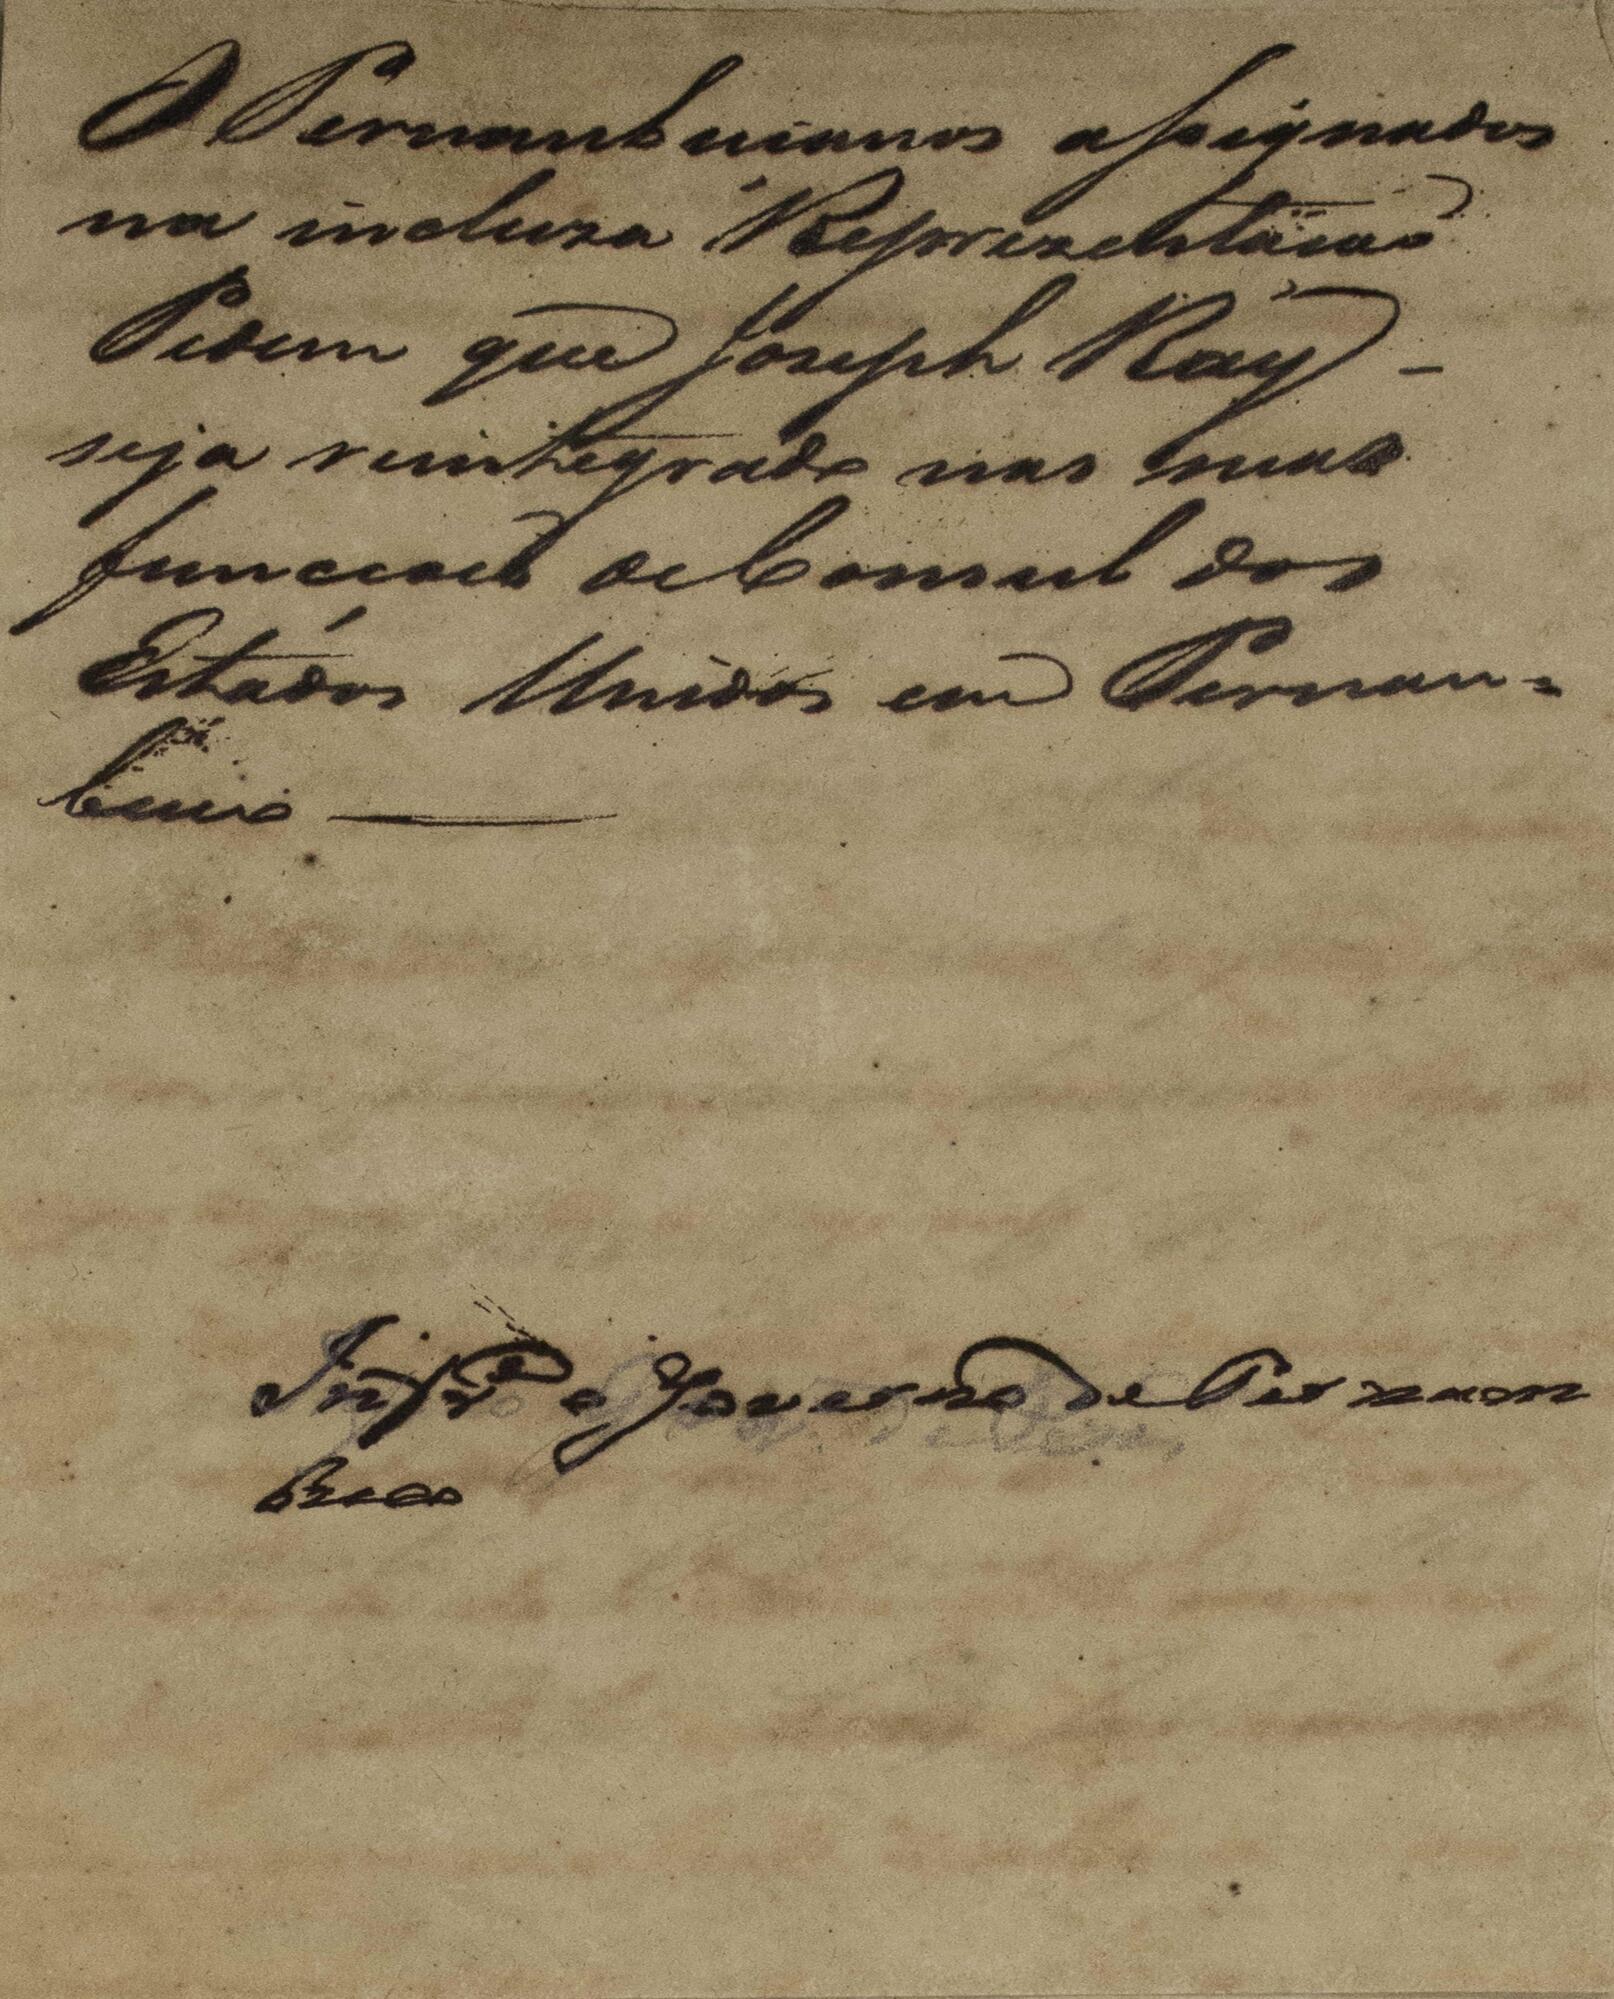 O Pernambucanos assignados
na incluza Representação
Pedem que Joseph Ray -
seja reintegrado nas suas
funccoeñs de Consul dos
Estádos Unidos em Pernam=
buco
Infre o Governo de Pernam
buco